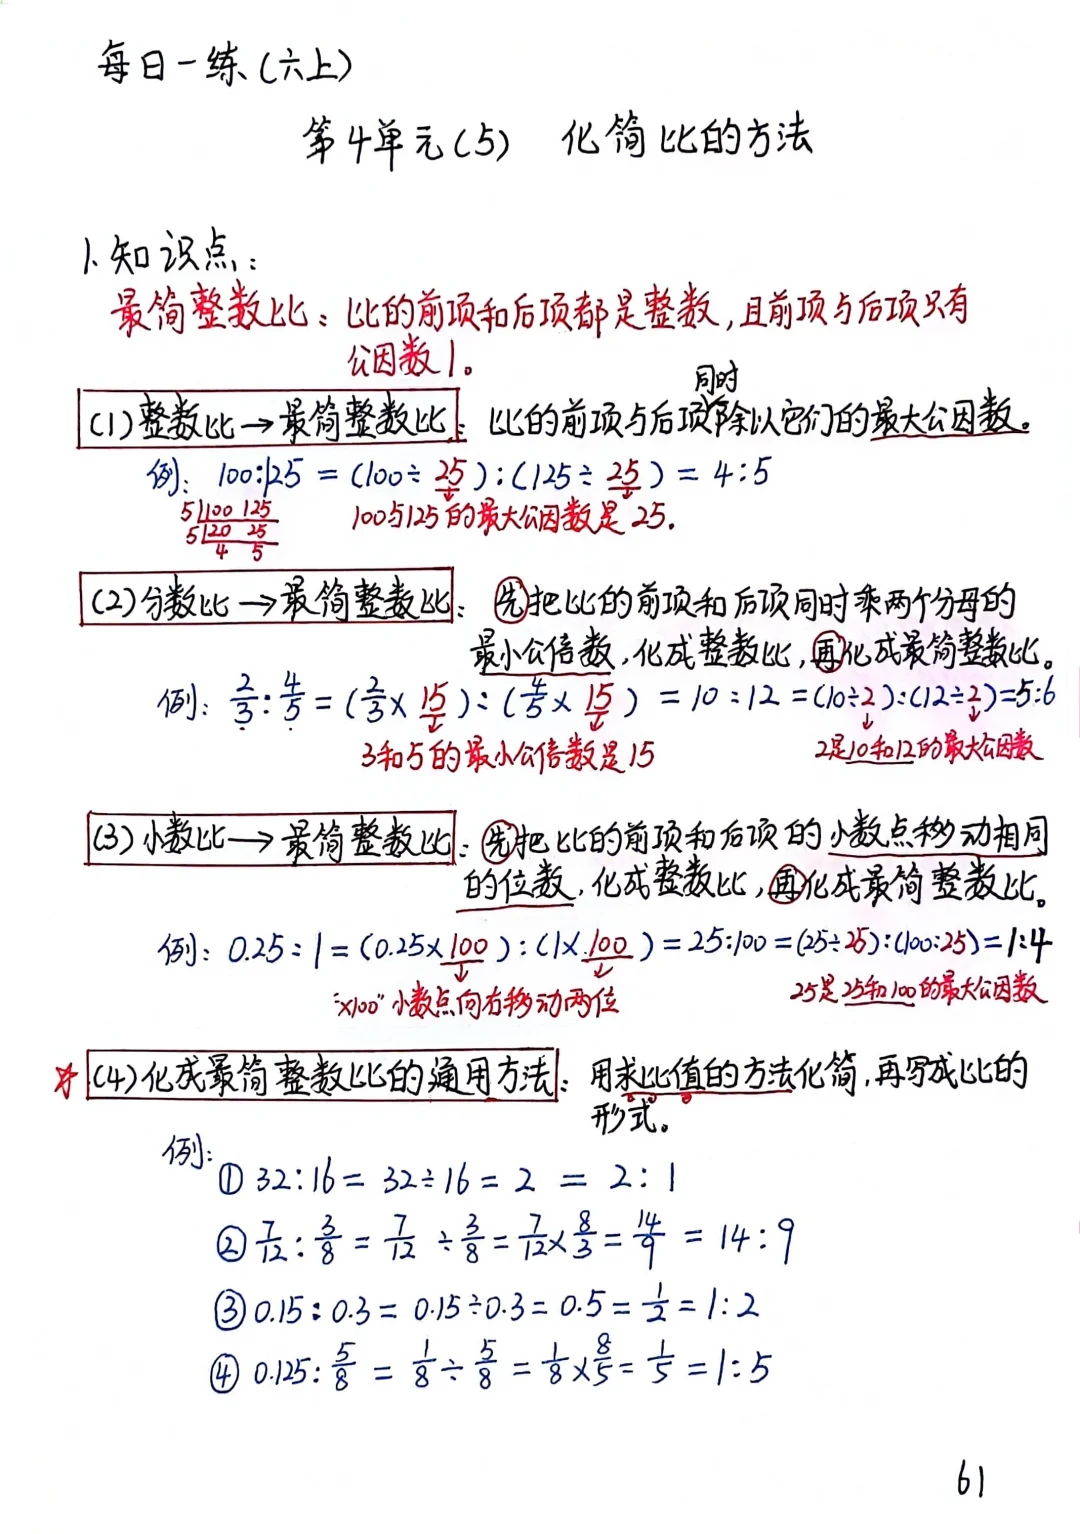 每日一练(六上)
第4单元(5) 化简比的方法
1.知识点:
最简整数比:比的前项和后项都是整数,且前项与后项只有
公因数1。
同时
(1)整数比→最简整数比:比的前项与后项除以它们的最大公因数。
例:100:125=(100÷25):(125÷25)=4:5
5 100 125
5 20 25
4 5
100与125的最大公因数是25.
(2)分数比→最简整数比:先把比的前项和后项同时乘两个分母的
最小公倍数,化成整数比,再化成最简整数比。
例:2/3:4/5=(2/3×15):(4/5×15)=10:12=(10÷2):(12÷2)=5:6
3和5的最小公倍数是15 2是10和12的最大公因数
(3)小数比→最简整数比:先把比的前项和后项的小数点移动相同
的位数,化成整数比,再化成最简整数比。
例:0.25:1=(0.25×100):(1×100)=25:100=(25÷25):(100:25)=1:4
"×100"小数点向右移动两位 25是25和100的最大公因数
☆(4)化成最简整数比的通用方法:用求比值的方法化简,再写成比的
形式。
例:
①32:16=32÷16=2=2:1
②7/12:3/8=7/12÷3/8=7/12×8/3=14/9=14:9
③0.15:0.3=0.15÷0.3=0.5=1/2=1:2
④0.125:5/8=1/8÷5/8=1/8×8/5=1/5=1:5
61